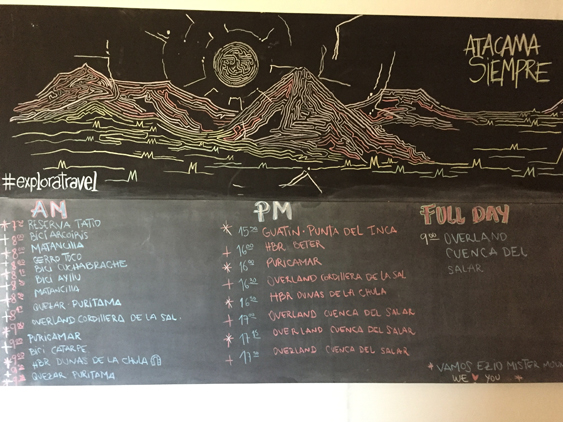 ATACAMA
SIEMPRE
#exploratravel
AM
RESERVA TATIO
BICI ARCOIRIS
MATANCILLA
CERRO TOCO
BICI CUCHABRACHE
BICI AYLLU
MATANCILLA
QUEZAR-PURITAMA
OVERLAND CORDILLERA DE LA SAL.
PURICAMAR
BICI CATARPE
HBR DUNAS DE LA CHULA
QUEZAR PURITAMA
PM
* 15:30 GUATIN-PUNTA DEL INCA
+ 16:00 HBR BETER
* 16:00 PURICAMAR
+ 16:30 OVERLAND CORDILLERA DE LA SAL
* 16:30 HBR DUNAS DE LA CHULA
+ 17:00 OVERLAND CUENCA DEL SALAR
* 17:15 OVERLAND CUENCA DEL SALAR
+ 17:30 OVERLAND CUENCA DEL SALAR
FULL DAY
9:00 OVERLAND
CUENCA DEL
SALAR
* VAMOS EZIO MISTER
WE ♥ YOU *